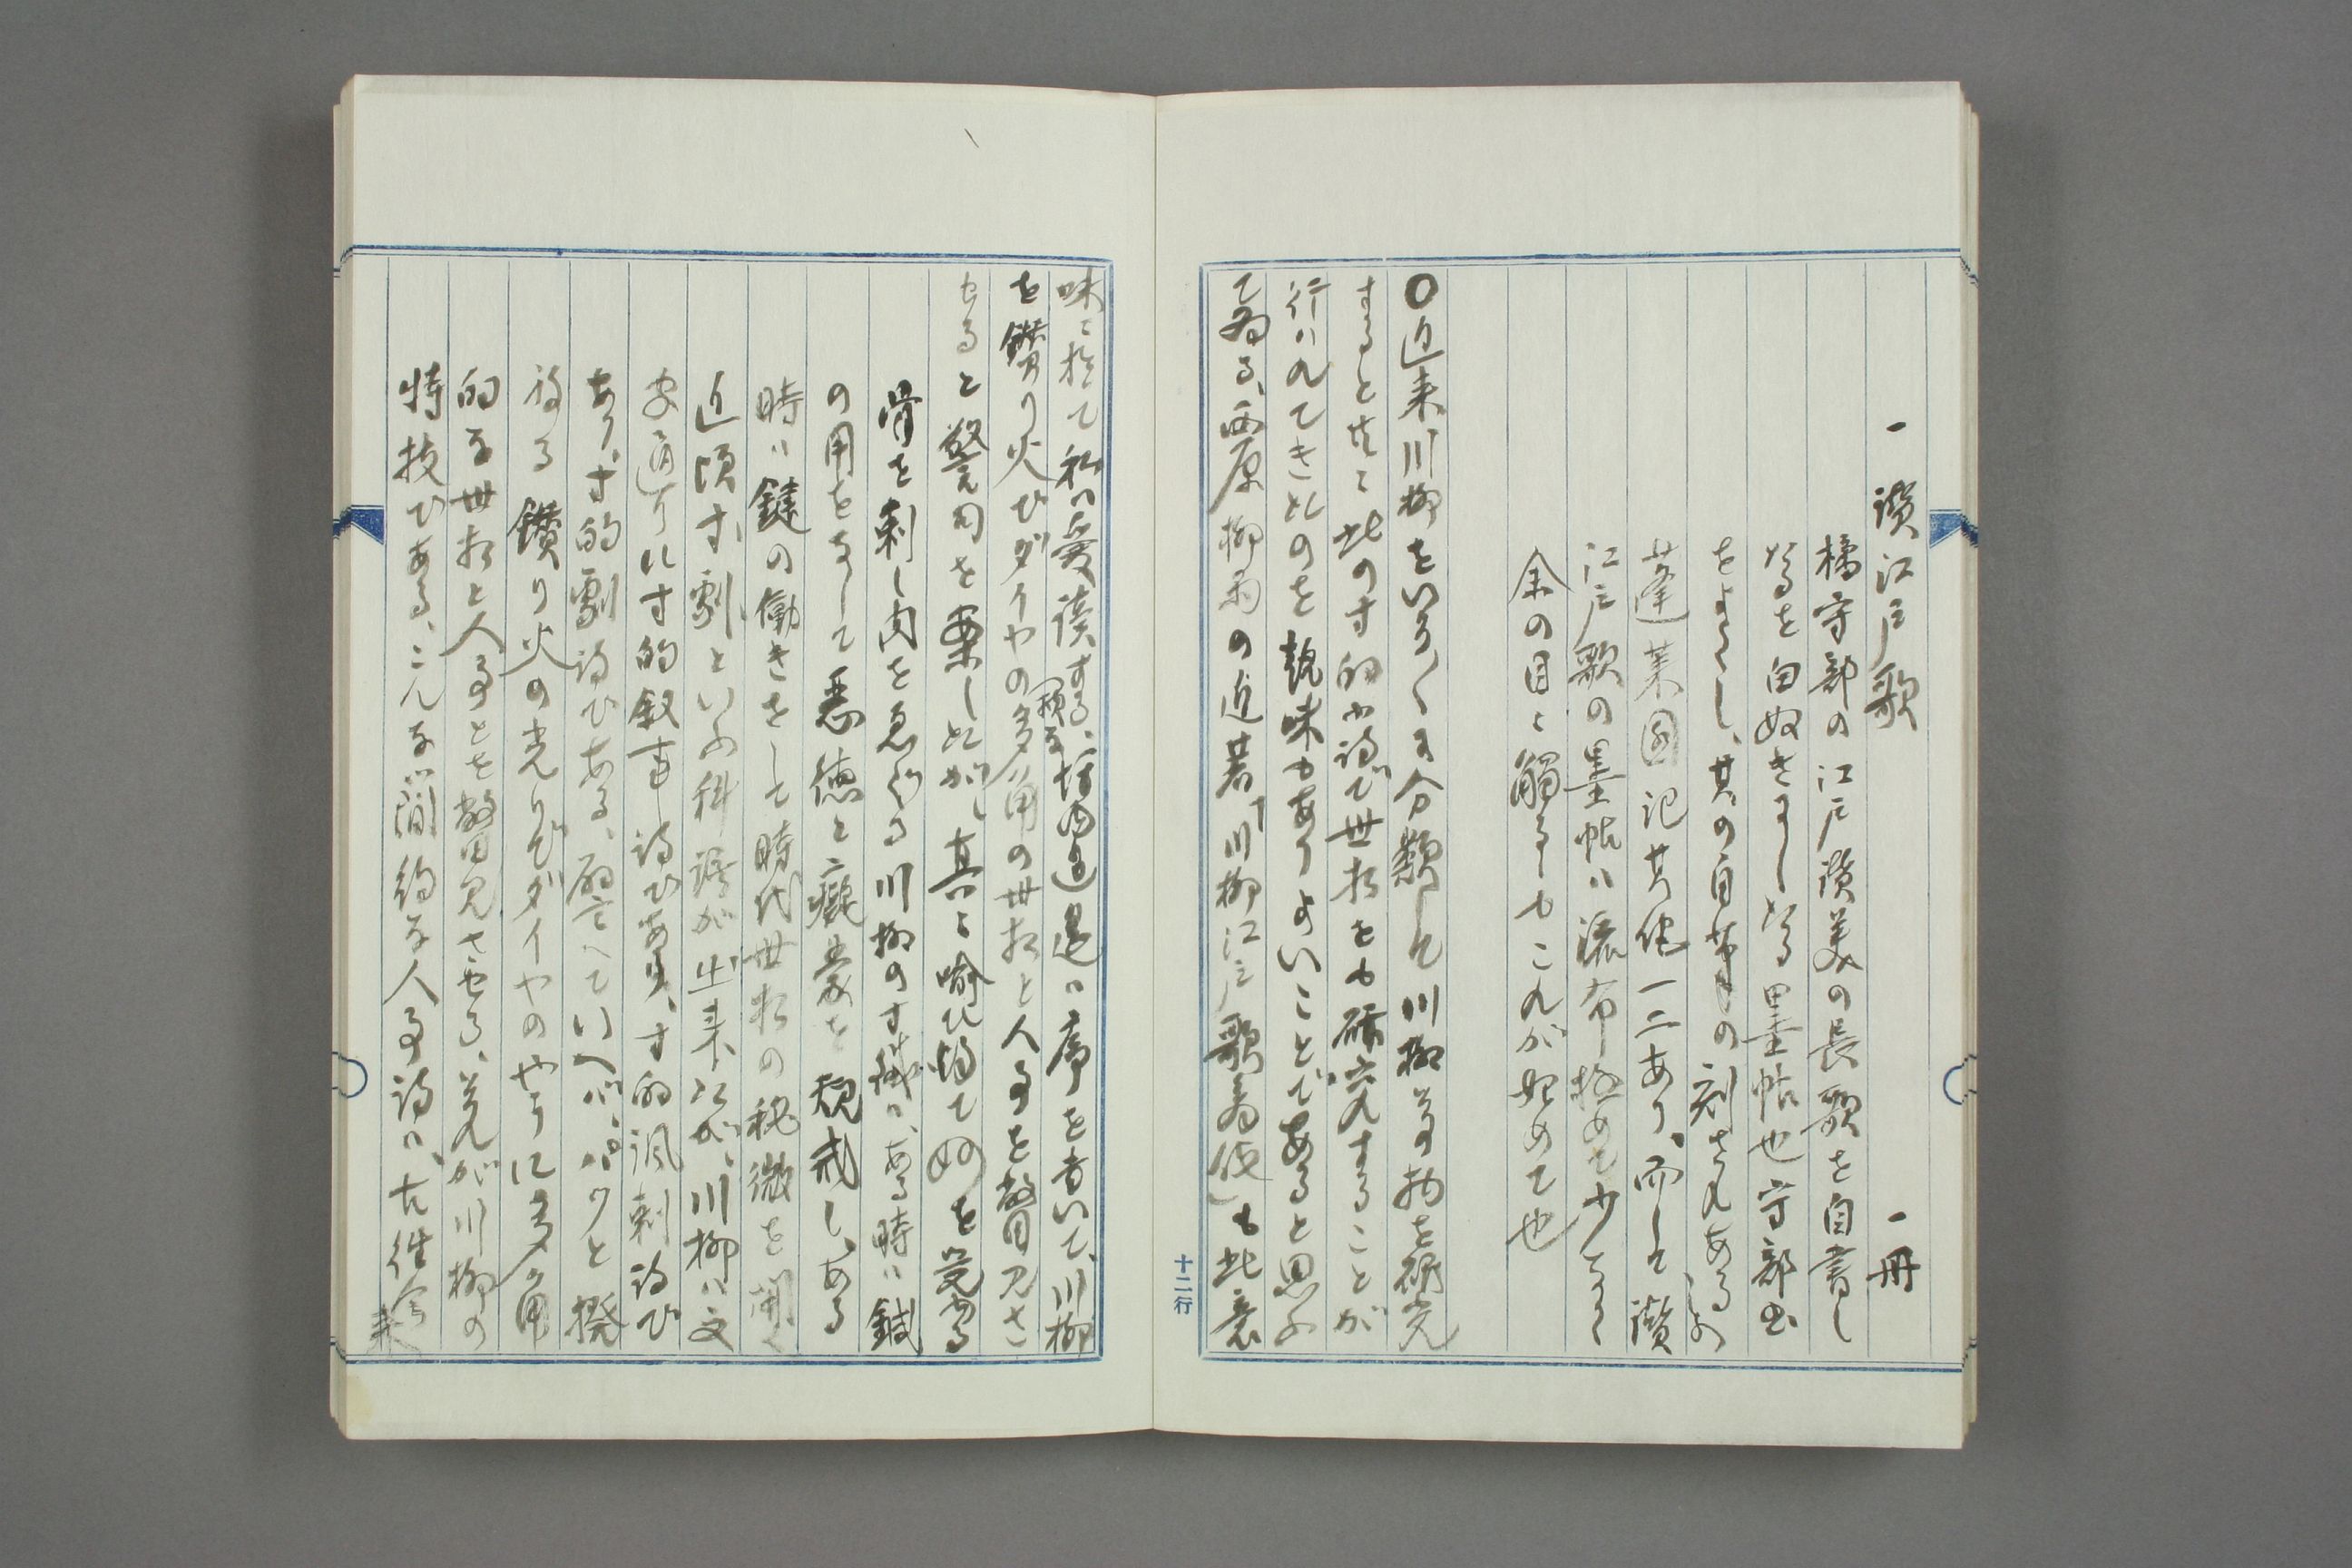 一 讃江戸歌 一冊
橘守部の江戸讃美の長歌を自書し
たるを白奴きまし たる墨帖也 守部書
をよくし、其の自筆の刻されあるもの
蓬莱園記其他一二あり、而して讃
江戸歌の墨帖ハ流布極めて少く
余の目ニ觸るゝもこれが始めて也
〇近来川柳をいろ〱に分類して川柳江戸物を研究
すると共ニ此の寸的小詩で世相をも研究することが
行ハれてきたのを趣味もありよいことであると思ふ
てゐる、西原柳雨の近著「川柳江戸歌舞伎」も此意
味ニ於て私ハ愛読する、坪内逍遥ハ序を書いて、川柳
を鑽り火びダイヤの類な多角の世相と人事を瞥見さ
せると警句を案したが、真に喩ひ得て妙を覚ゆる
骨を刺し肉をゑぐる川柳の寸鉄ハ、ある時ハ鍼
の用をなして悪徳と癡蒙を規戒し、ある
時ハ鍵の働きをして時代世相の秘微を開く
近頃寸劇といふ科語が出来たが、川柳ハ文
字通りに寸的叙事詩び、寸的諷刺詩び
あり、寸的劇詩びある、譬へていへバ、パツと撥
ねる鑽り火の光りでダイヤのやうに多角
的な世相と人事とを瞥見させる、それが川柳の
特技びある、こんな簡約な人事詩ハ、古往今
来
十二行